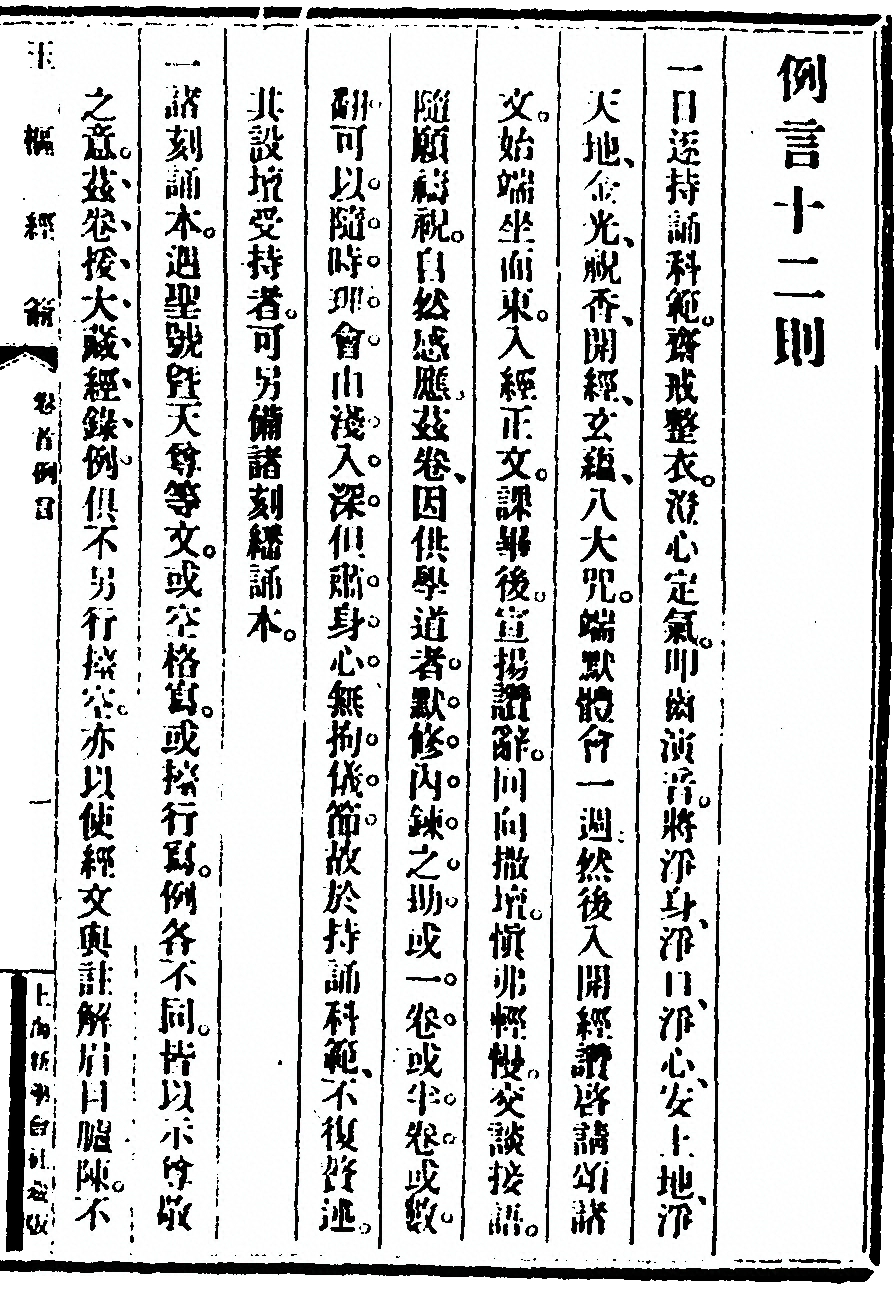 例言十二則
一日逐持誦科範。齋戒整衣。澄心定氣。叩齒演音。將淨身、淨口、淨心、安土地、淨
天地、金光、祝香、開經、玄蘊、八大咒。端默體會一週然後入開經讚啓請頌諸
文。始端坐面東。入經正文。課畢後。宣揚讚辭。回向撒壇。愼弗輕慢。交談接語。
隨願禱祝。自然感應。茲卷、因供學道者。默。修。內。鍊。之。助。或一。卷。或半。卷。或數。
翻。可以。隨。時。理。會。由淺。入。深。但肅。身。心。無拘。儀。節。故於持誦科範、不復贅述。
其設壇受持者。可另備諸刻繙誦本。
一諸刻誦本。遇聖號曁天尊等文。或空格寫。或擡行寫。例各不同。皆以示尊敬
之意。茲、卷、援、大、藏、經、錄、例。俱不另行擡空。亦以使經文與註解眉目臚陳。不
玉樞經籥
卷首例言
一
上海翼化堂善社藏版